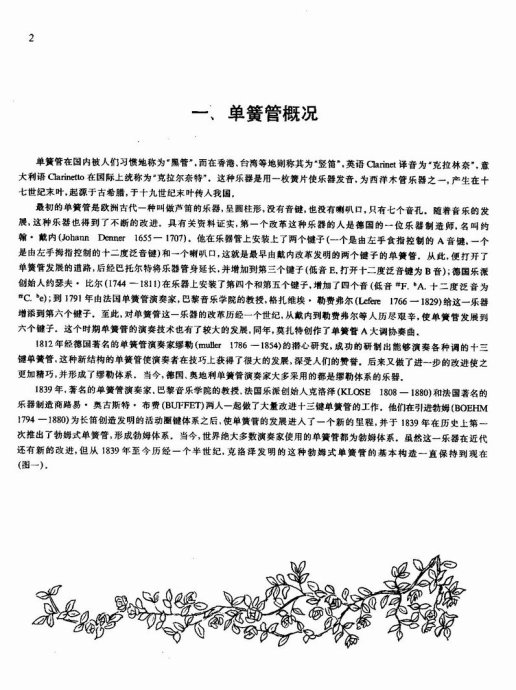 2
一、单簧管概况
单簧管在国内被人们习惯地称为“黑管”,而在香港、台湾等地则称其为“竖笛”,英语 Clarinet 译音为“克拉林奈”,意
大利语 Clarinetto 在国际上统称为“克拉尔奈特”。这种乐器是用一枚簧片使乐器发音,为西洋木管乐器之一,产生在十
七世纪末叶,起源于古希腊,于十九世纪末叶传入我国。
最初的单簧管是欧洲古代一种叫做芦笛的乐器,呈圆柱形,没有音键,也没有喇叭口,只有七个音孔。随着音乐的发
展,这种乐器也得到了不断的改进。具有关资料证实,第一个改革这种乐器的人是德国的一位乐器制造师,名叫约
翰·戴内(Johann Denner 1655—1707)。他在乐器管上安装上了两个键子(一个是由左手食指控制的 A 音键,一个
是由左手拇指控制的十二度泛音键)和一个喇叭口,这就是最早由戴内改革发明的两个键子的单簧管。从此,便打开了
单簧管发展的道路,后经巴托尔特将乐器管身延长,并增加到第三个键子(低音 E,打开十二度泛音键为 B 音);德国乐派
创始人约瑟夫·比尔(1744—1811)在乐器上安装了第四个和第五个键子,增加了四个音(低音 #F. bA. 十二度泛音为
#C. be);到 1791 年由法国单簧管演奏家,巴黎音乐学院的教授,格扎维埃·勒费弗尔(Lefere 1766—1829)给这一乐器
增添到第六个键子。至此,对单簧管这一乐器的改革历经一个世纪,从戴内到勒费弗尔等人历尽艰辛,使单簧管发展到
六个键子。这个时期单簧管的演奏技术也有了较大的发展,同年,莫扎特创作了单簧管 A 大调协奏曲。
1812 年经德国著名的单簧管演奏家缪勒(muller 1786—1854)的潜心研究,成功的研制出能够演奏各种调的十三
键单簧管,这种新结构的单簧管使演奏者在技巧上获得了很大的发展,深受人们的赞誉。后来又做了进一步的改进使之
更加精巧,并形成了缪勒体系。当今,德国、奥地利单簧管演奏家大多采用的都是缪勒体系的乐器。
1839 年,著名的单簧管演奏家,巴黎音乐学院的教授,法国乐派创始人克洛泽(KLOSE 1808—1880)和法国著名的
乐器制造商路易·奥古斯特·布费(BUFFET)两人一起做了大量改进十三键单簧管的工作。他们在引进勃姆(BOEHM
1794—1880)为长笛创造发明的活动圈键体系之后,使单簧管的发展进入了一个新的里程,并于 1839 年在历史上第一
次推出了勃姆式单簧管,形成勃姆体系。当今,世界绝大多数演奏家使用的单簧管都为勃姆体系。虽然这一乐器在近代
还有新的改进,但从 1839 年至今历经一个半世纪,克洛泽发明的这种勃姆式单簧管的基本构造一直保持到现在
(图一)。